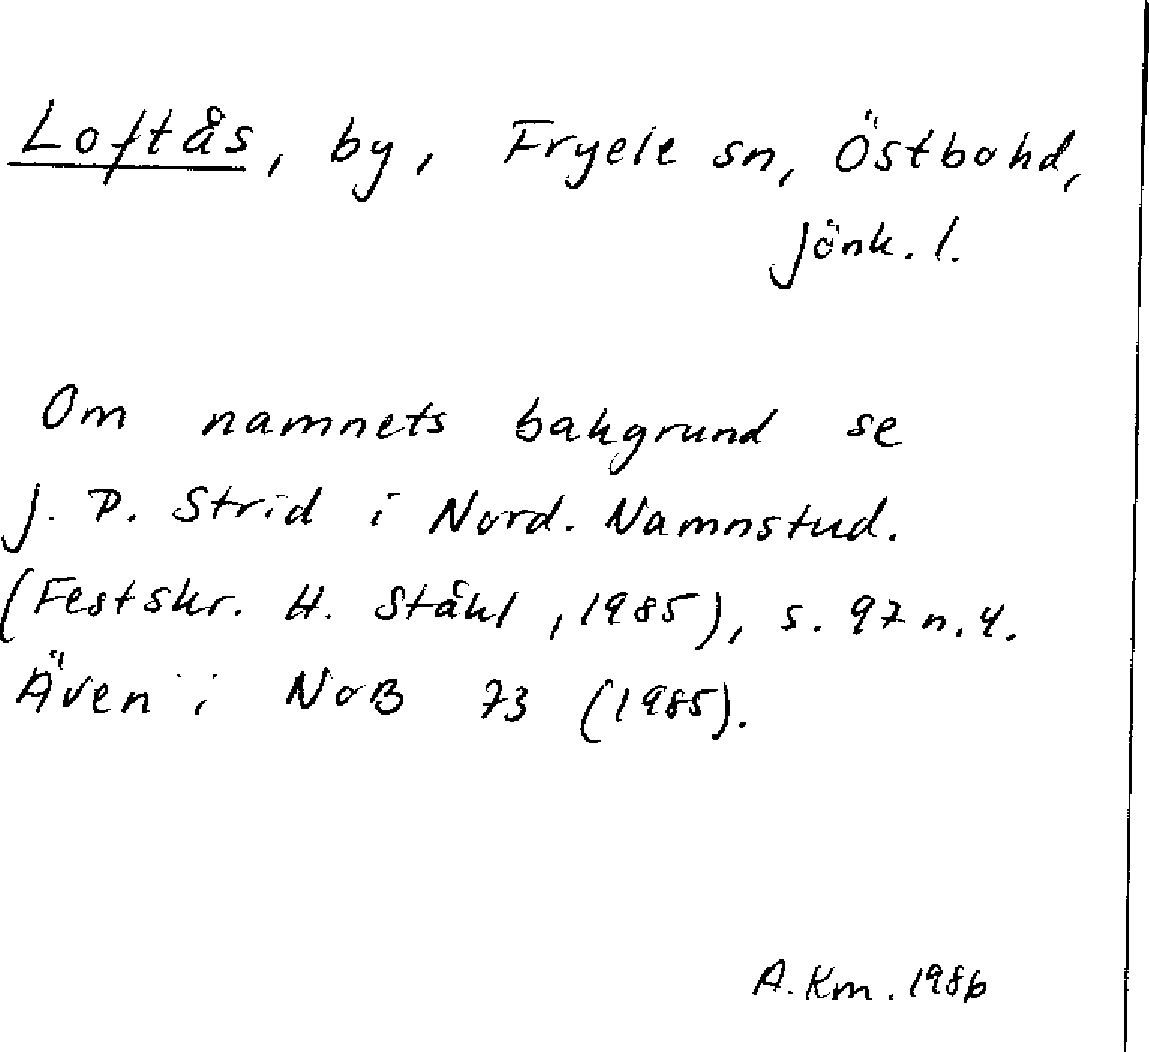 Loftås, by, Fryele sn, Östbohd,
Jönk. l.
Om namnets bakgrund se
J. P. Strid i Nord. Namnstud.
(Festskr. H. Ståhl, 1985), s. 97 n. 4.
Även i NoB 73 (1985).
A. Km. 1986